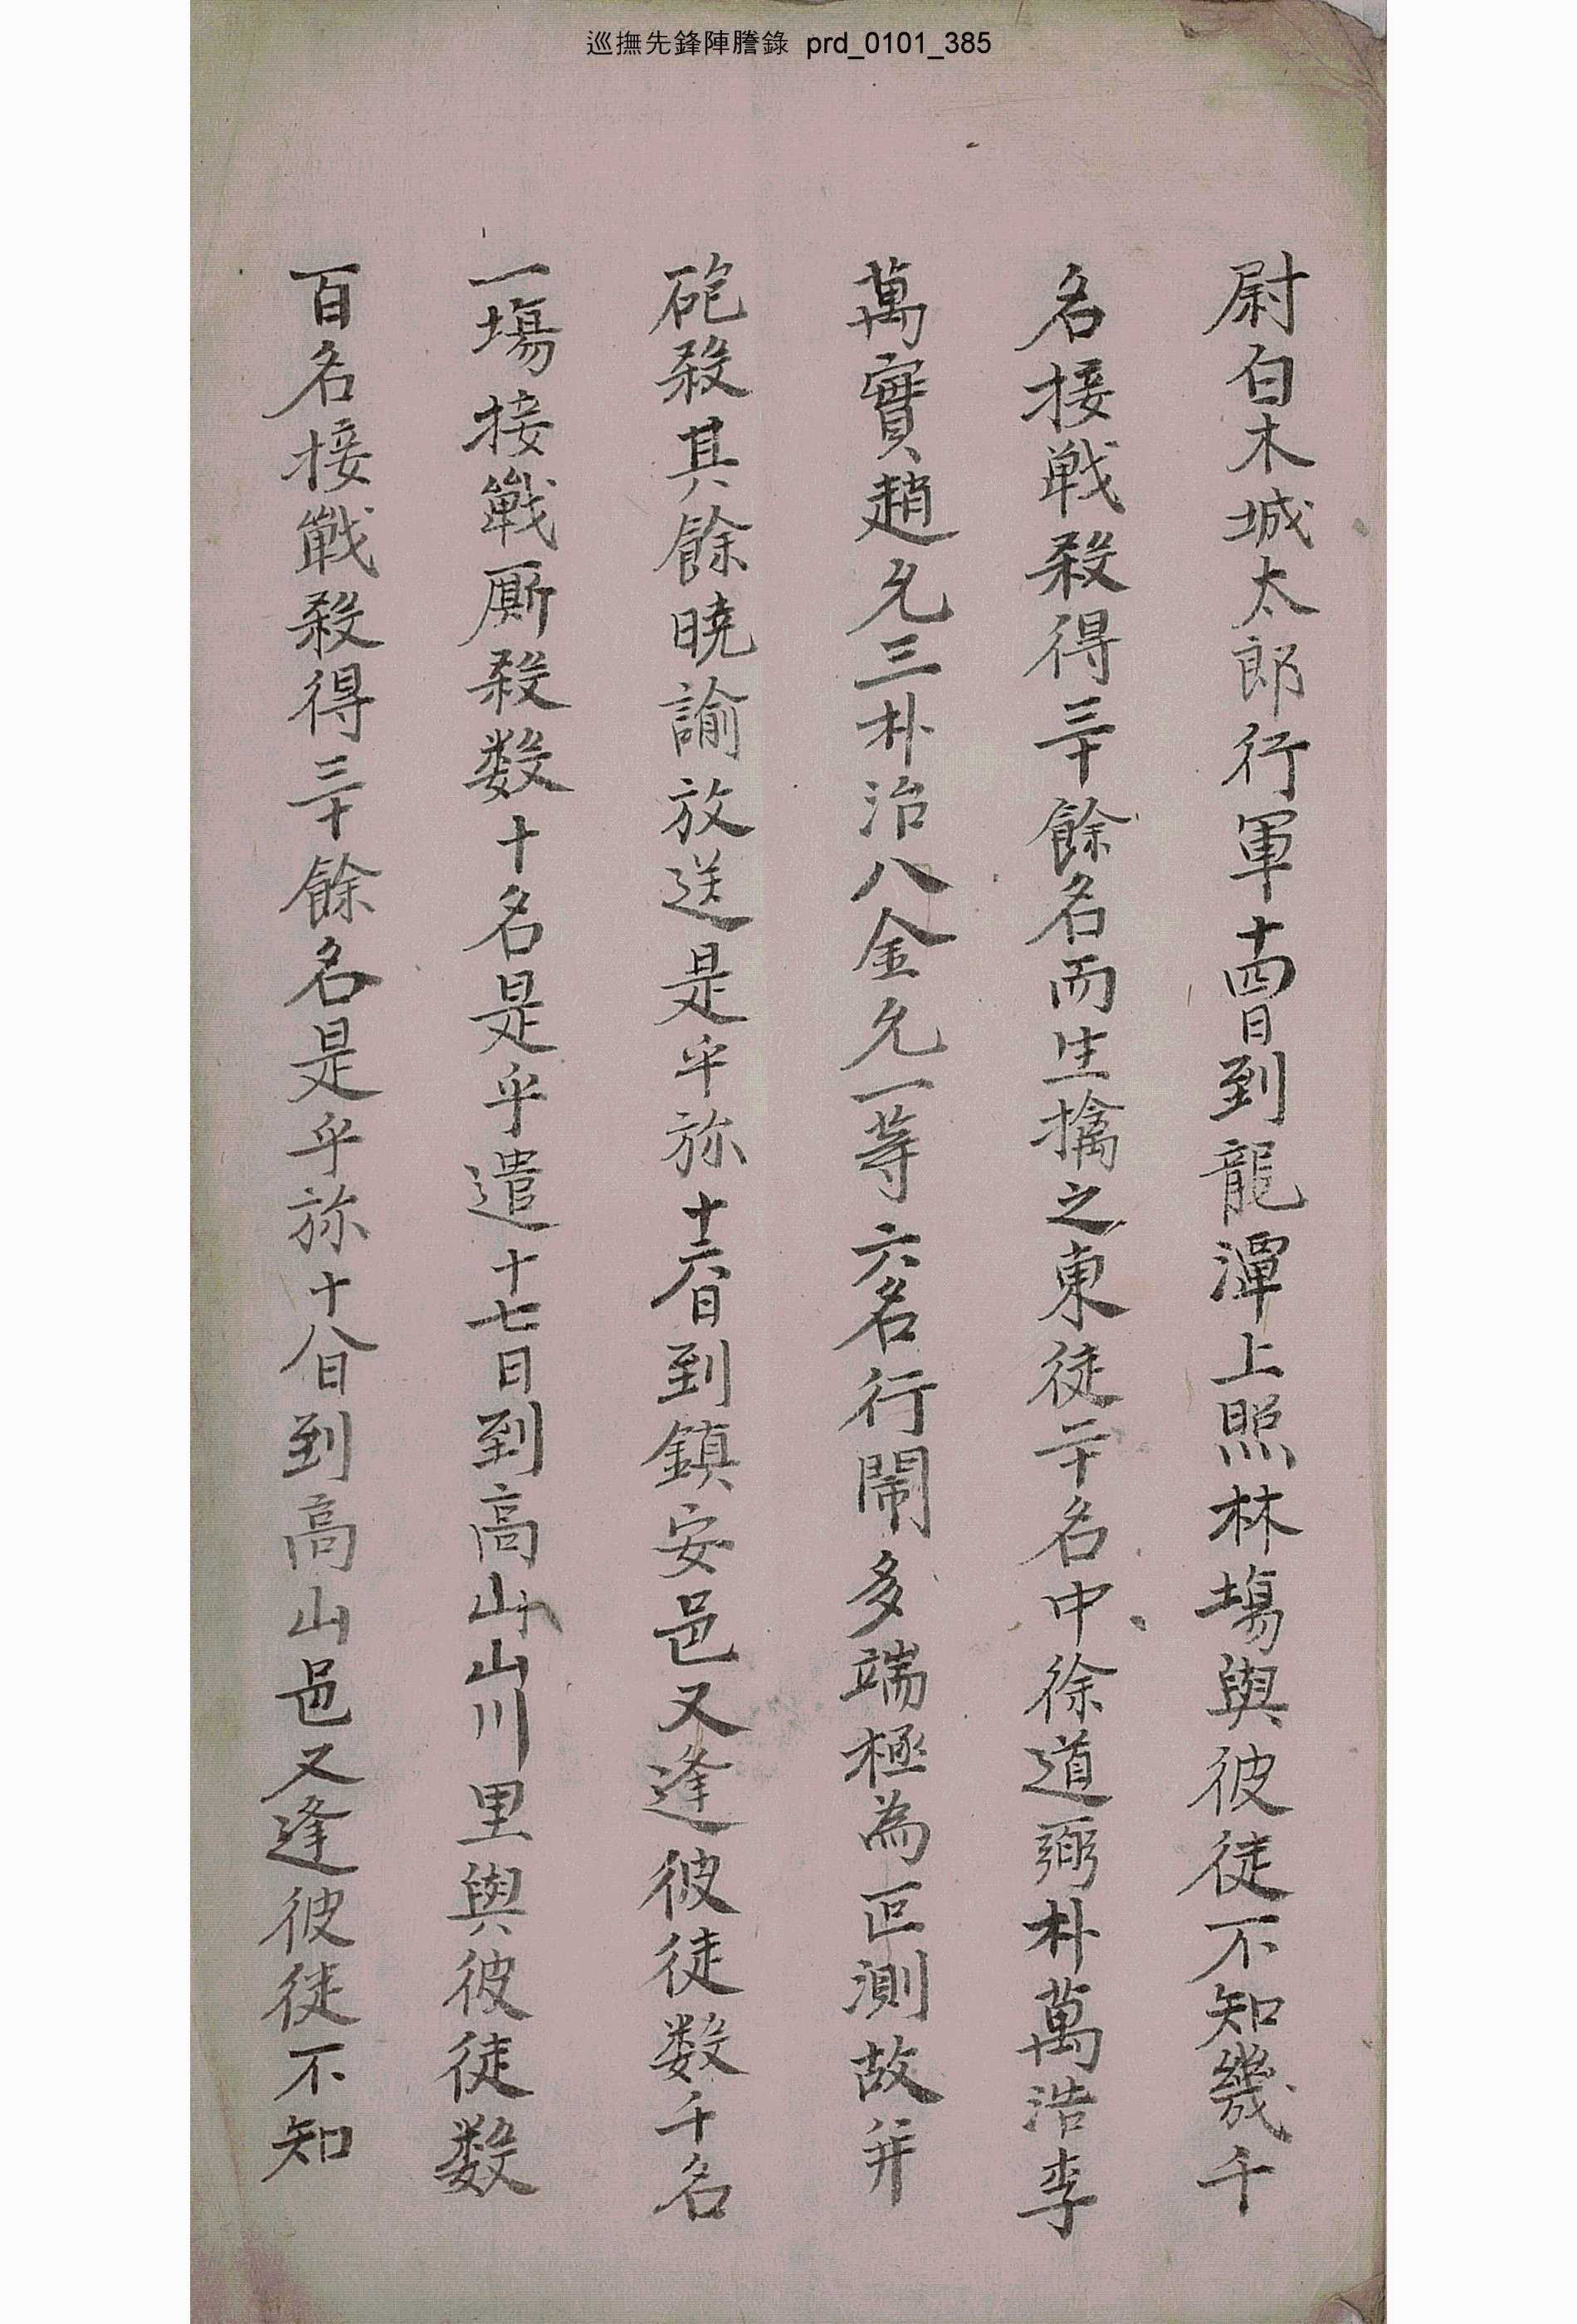 巡撫先鋒陣謄錄 prd_0101_385
尉白木城太郎行軍十四日到龍潭上照林場與彼徒不知幾千
名接戰殺得三十餘名而生擒之東徒二十名中徐道弼朴萬浩李
萬實趙允三朴治八金允一等六名行閙多端極為叵測故并
砲殺其餘曉諭放送是乎旀十六日到鎮安邑又逢彼徒数千名
一塲接戰厮殺数十名是乎遣十七日到高山山川里與彼徒数
百名接戰殺得三十餘名是乎旀十八日到高山邑又逢彼徒不知